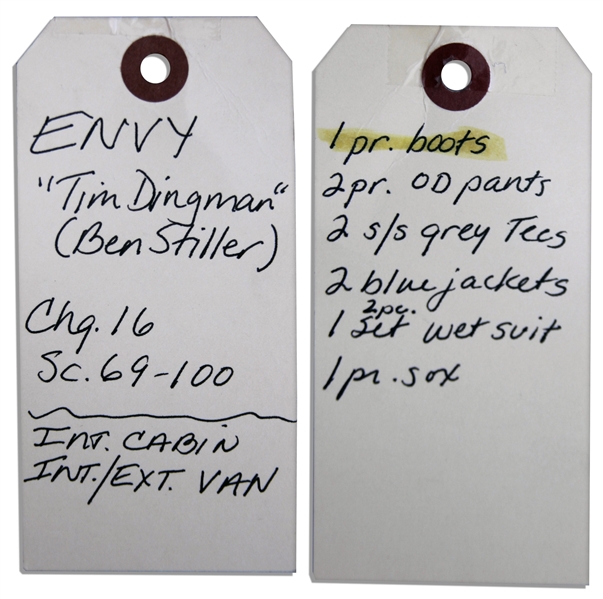 ENVY
"Tim Dingman"
(Ben Stiller)
Chg. 16
Sc. 69-100
INT. CABIN
INT./EXT. VAN
1 pr. boots
2 pr. OD pants
2 s/s grey Tees
2 blue jackets
2pc.
1 set wet suit
1 pr. sox